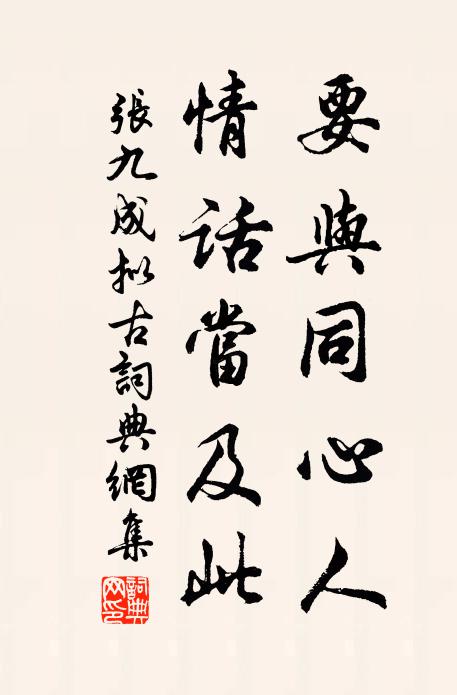 要與同心人
情話當及此
張九成擬古詞典網集
詞典網印